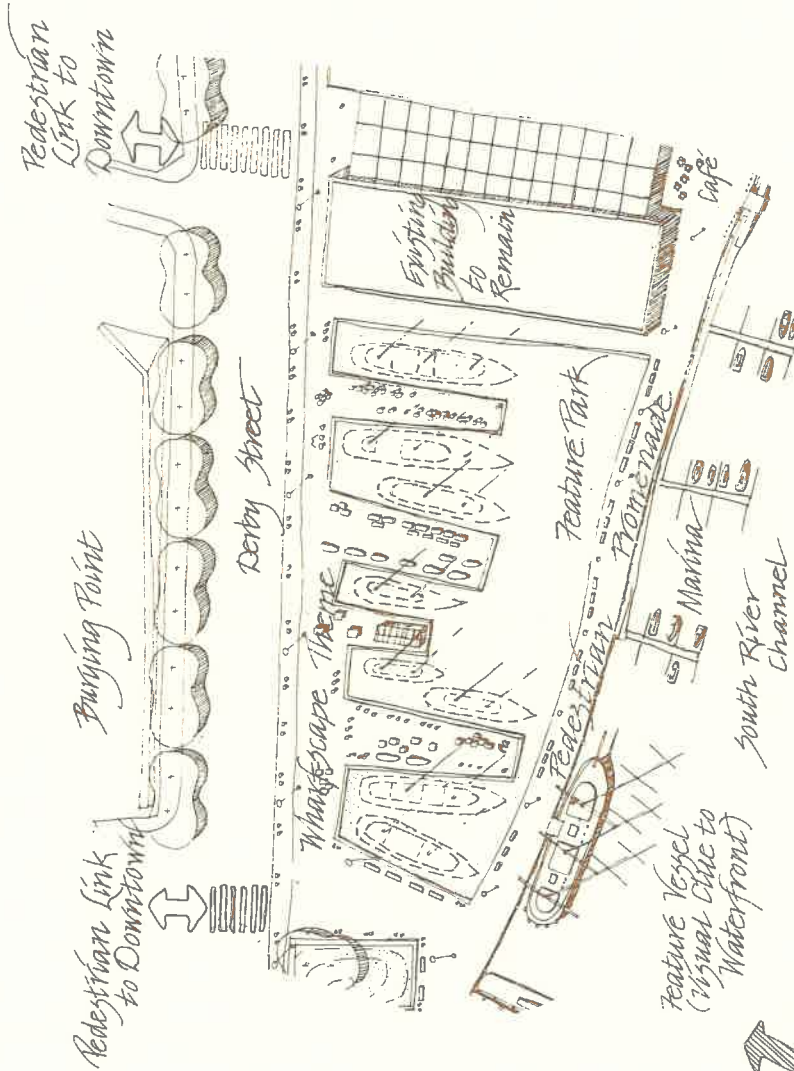 Pedestrian
Link to
Downtown
Burying Point
Pedestrian Link
to Downtown
Derby Street
Existing
Building
to
Remain
Cafe
Wharfscape Theme
Feature Park
Pedestrian Promenade
Marina
South River
Channel
Feature Vessel
(Visual Clue to
Waterfront)